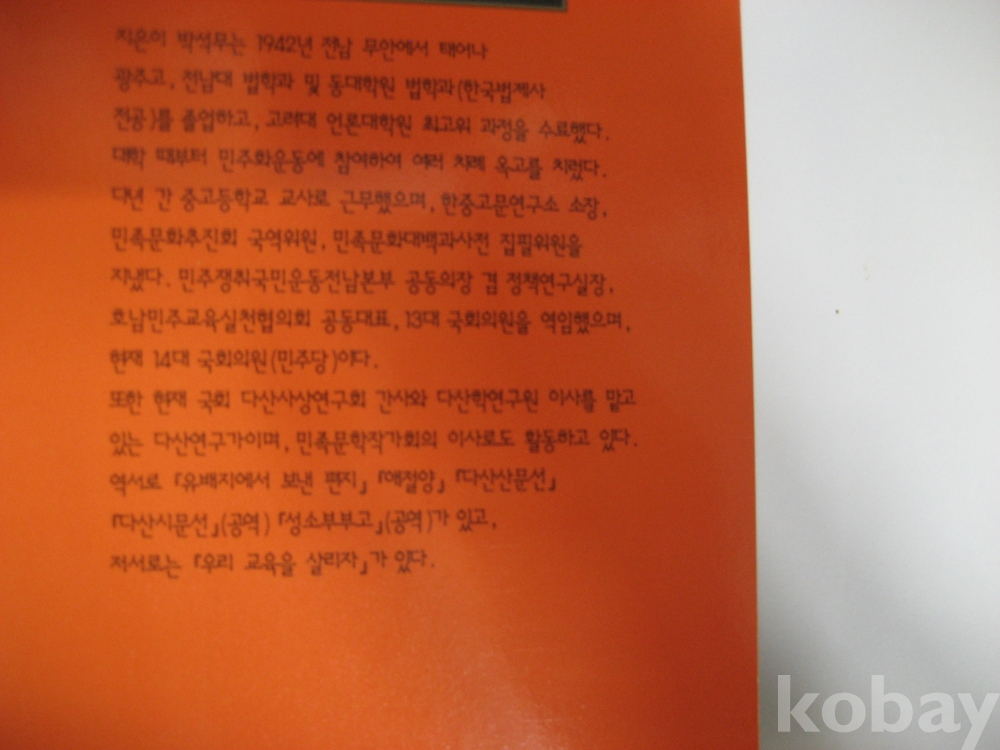 지은이 박석무는 1942년 전남 무안에서 태어나
광주고, 전남대 법학과 및 동대학원 법학과(한국법제사
전공)를 졸업하고, 고려대 언론대학원 최고위 과정을 수료했다.
대학 때부터 민주화운동에 참여하여 여러 차례 옥고를 치렀다.
다년 간 중고등학교 교사로 근무했으며, 한중고문연구소 소장,
민족문화추진회 국역위원, 민족문화대백과사전 집필위원을
지냈다. 민주쟁취국민운동전남본부 공동의장 겸 정책연구실장,
호남민주교육실천협의회 공동대표, 13대 국회의원을 역임했으며,
현재 14대 국회의원(민주당)이다.
또한 현재 국회 다산사상연구회 간사와 다산학연구원 이사를 맡고
있는 다산연구가이며, 민족문학작가회의 이사로도 활동하고 있다.
역서로 『유배지에서 보낸 편지』 『애절양』 『다산산문선』
『다산시문선』(공역) 『성소부부고』(공역)가 있고,
저서로는 『우리 교육을 살리자』가 있다.
kobay